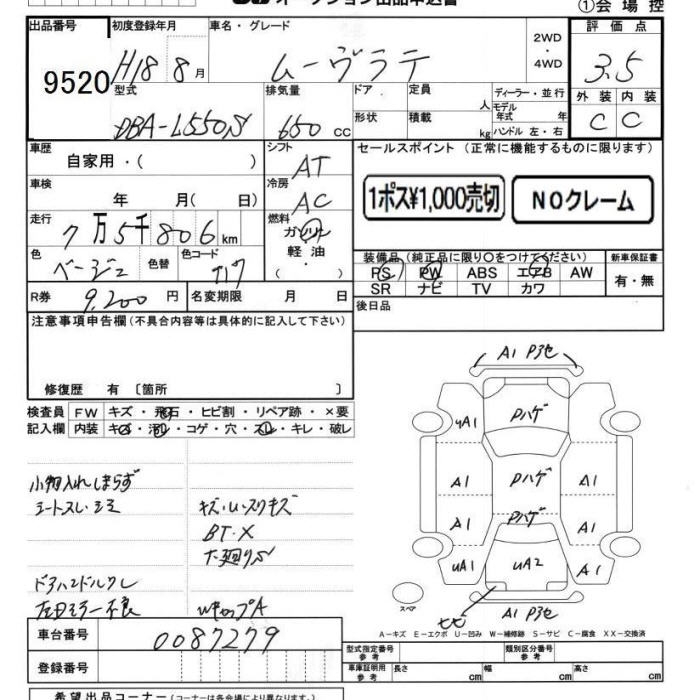 オークション出品申込書
①会場控
出品番号 初度登録年月 車名・グレード 2WD・4WD 評価点
9520 H18 8月 ムーヴラテ 3.5
型式 排気量 ドア 定員 人 ディーラー・並行
DBA-L550S 650 cc 形状 積載 kg モデル年式 年 ハンドル 左・右
外装 内装
C C
車歴 自家用・( ) シフト AT
セールスポイント (正常に機能するものに限ります)
車検 年 月( 日) 冷房 AC
1ポス¥1,000売切 NOクレーム
走行 7万5千806km 燃料 ガソリン 軽油・( )
色 ベージュ 色替 色コード T17
装備品(純正品に限り○をつけてください) 新車保証書
PS PW ABS エアB AW 有・無
SR ナビ TV カワ
R券 9,200円 名変期限 月 日
後日品
注意事項申告欄(不具合内容等は具体的に記入して下さい)
修復歴 有 〔箇所 〕
検査員 FW キズ・飛石・ヒビ割・リペア跡・×要
記入欄 内装 キズ・汚れ・コゲ・穴・スレ・キレ・破レ
小物入れしまらず
シートスレ・シミ
キズ・U・スリキズ
BT・X
下廻りS
ドアハンドルクレ
左ミラー不良
WキャップA
A1 Pヨゴレ
Pハゲ
UA1 A1
A1 Pハゲ A1
A1 Pハゲ A1
UA1 UA2
ヒビ
A1
スペア
A-キズ E-エクボ U-凹み W-補修跡 S-サビ C-腐食 XX-交換済
車台番号 0087279
登録番号
型式指定番号 参考 類別区分番号 参考
車庫証明用 参考 長さ cm 幅 cm 高さ cm
希望出品コーナー(コーナーは各会場により異なります)